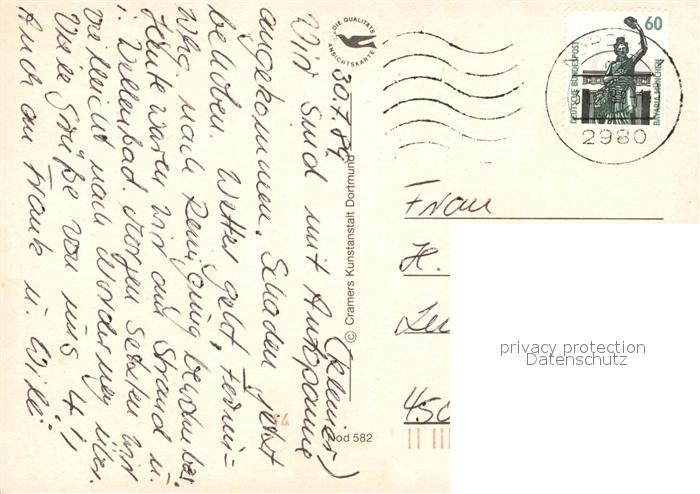 30.7.89
Wir sind mit Autopanne (kleiner)
angekommen. Schaden jetzt
behoben. Wetter gebt, Ferni-
whg. nach Reinigung bewohnbar.
Heute waren wir am Strand u.
i. Wellenbad. Morgen setzen wir
vielleicht nach Norderney über.
Viele Grüße von uns 4!
Auch an Frank u. Wille.
DIE QUALITÄTS
ANSICHTSKARTE
© Cramers Kunstanstalt Dortmund
Nod 582
60
DEUTSCHE BUNDESPOST
BAVARIA MÜNCHEN
2980
Frau
H.
450
privacy protection
Datenschutz